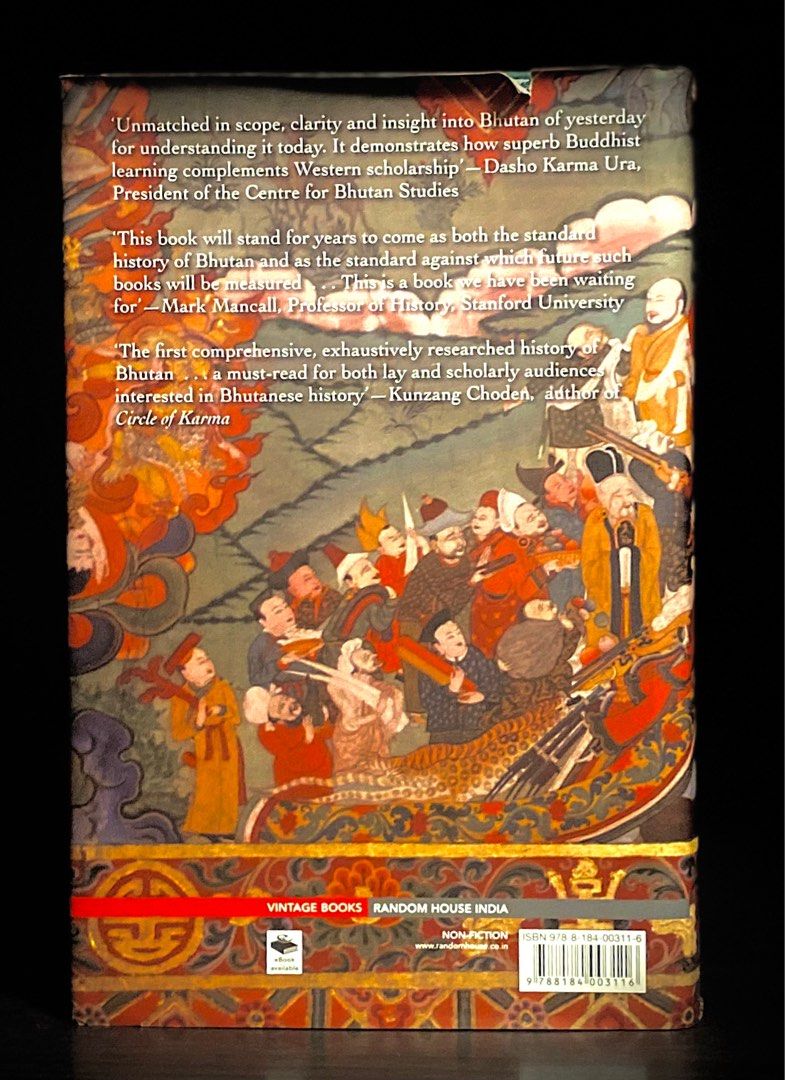 ‘Unmatched in scope, clarity and insight into Bhutan of yesterday
for understanding it today. It demonstrates how superb Buddhist
learning complements Western scholarship’—Dasho Karma Ura,
President of the Centre for Bhutan Studies
‘This book will stand for years to come as both the standard
history of Bhutan and as the standard against which future such
books will be measured . . . This is a book we have been waiting
for’—Mark Mancall, Professor of History, Stanford University
‘The first comprehensive, exhaustively researched history of
Bhutan . . . a must-read for both lay and scholarly audiences
interested in Bhutanese history’—Kunzang Choden, author of
Circle of Karma
VINTAGE BOOKS RANDOM HOUSE INDIA
NON-FICTION
www.randomhouse.co.in
eBook
available
ISBN 978-8-184-00311-6
9 788184 003116